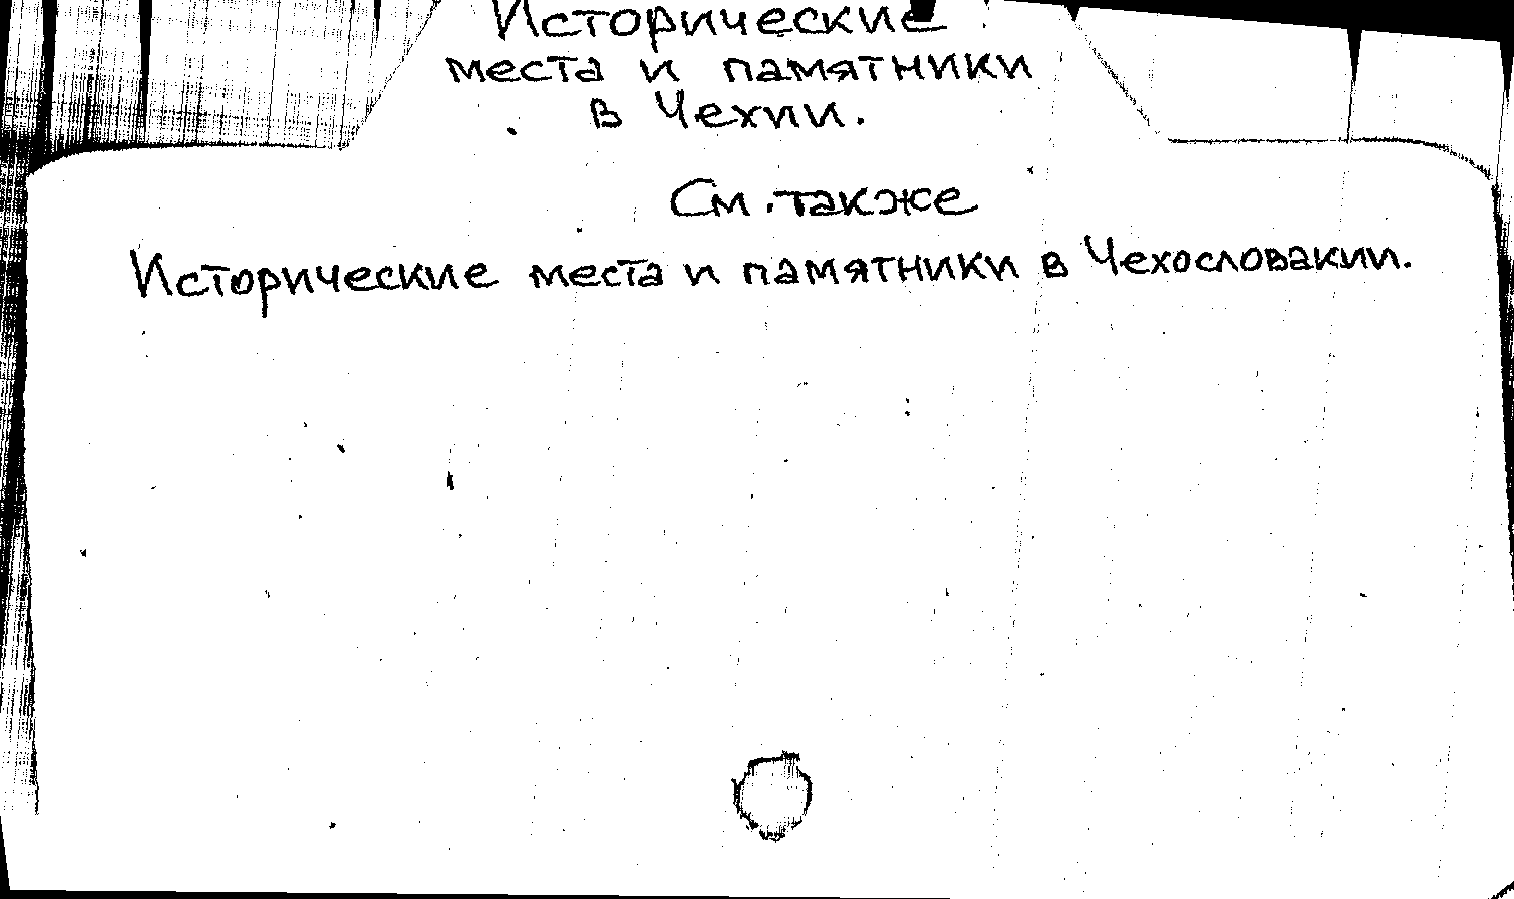 Исторические
места и памятники
в Чехии.
См. также
Исторические места и памятники в Чехословакии.